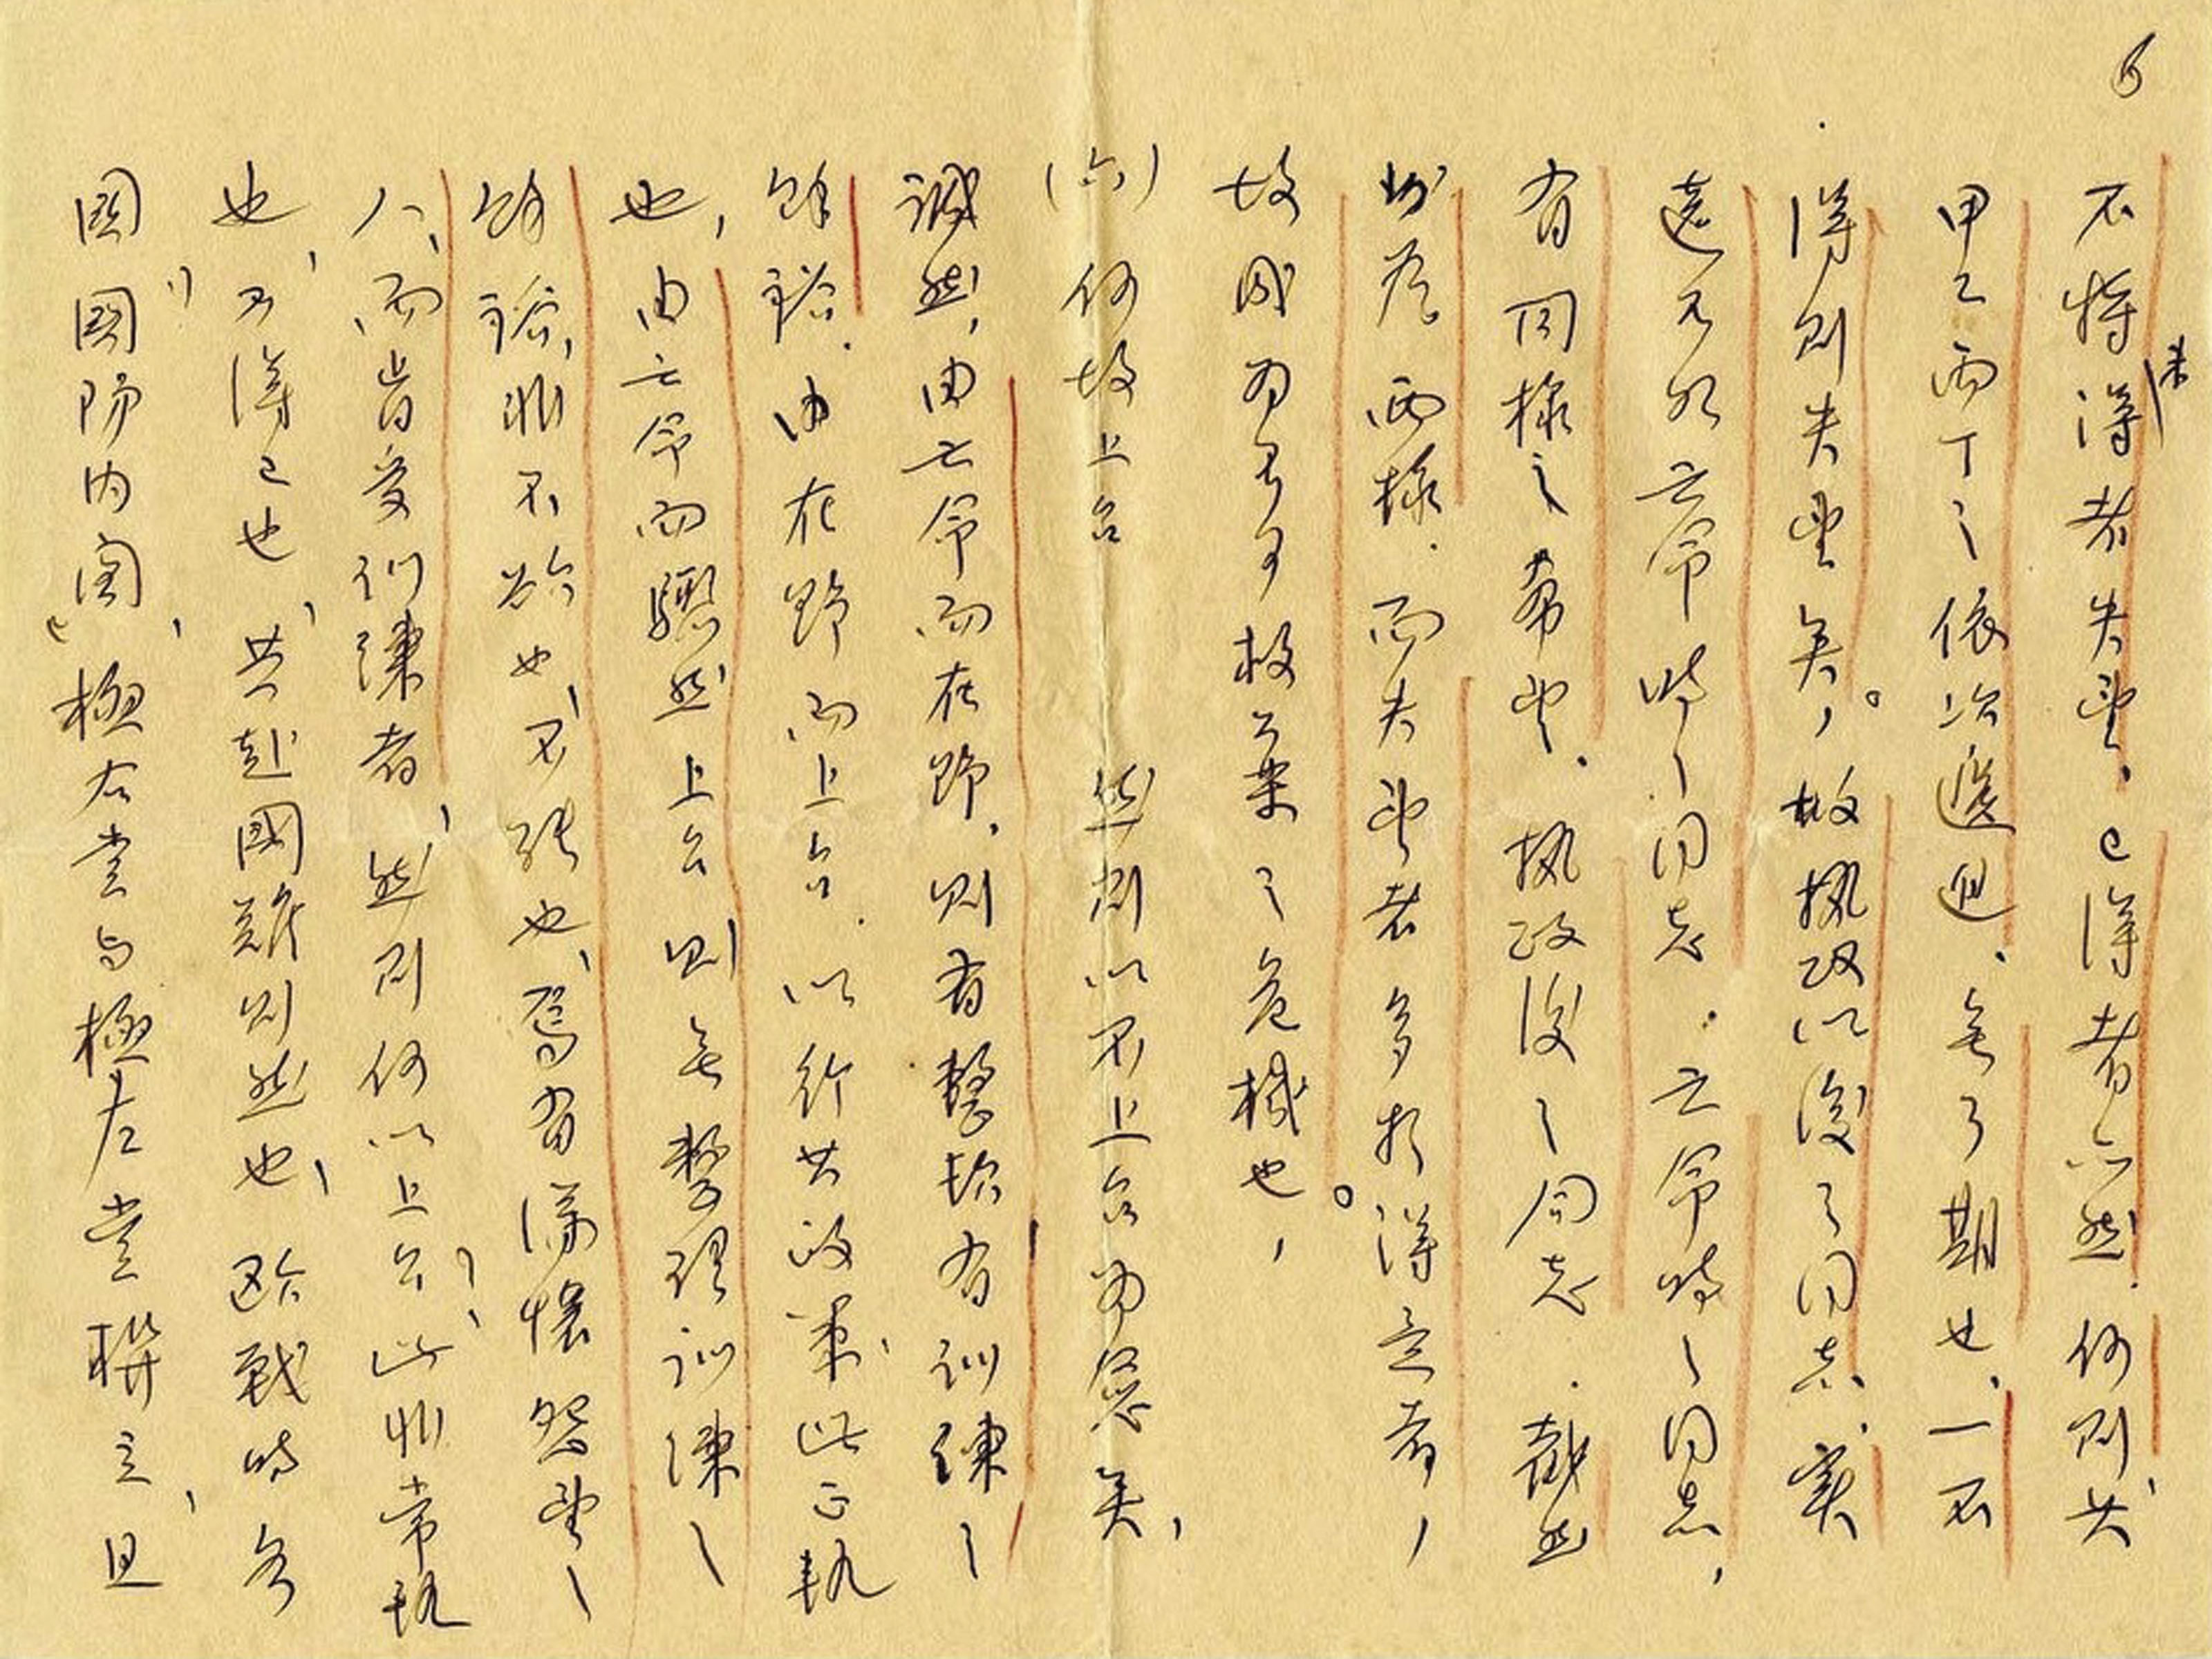 6
不特未得者失望、已得者亦然、何則其
甲乙丙丁之依次遞進、無了期也、一不
得則失望矣。故執政以後之同志、實
遠不如亡命時之同志、亡命時之同志、
有同樣之希望、執政後之同志、截然
分為兩樣、而失望者多於得意者、
故國為有可之危機也。
(六)何故上台 然則以不上台為宜矣、
誠然、由亡命而在野、則有整頓有訓練之
餘裕、由在野而上台、以行其政策、此正軌
也、由亡命而驟然上台、則無整理訓練之
餘裕、非不欲也、不能也、焉有滿懷怨望之
人、而肯受訓練者、然則何以上台、此非常軌
也、不得已也、共赴國難則然也、歐戰時各
國國防內閣、極右黨與極左黨聯立、且